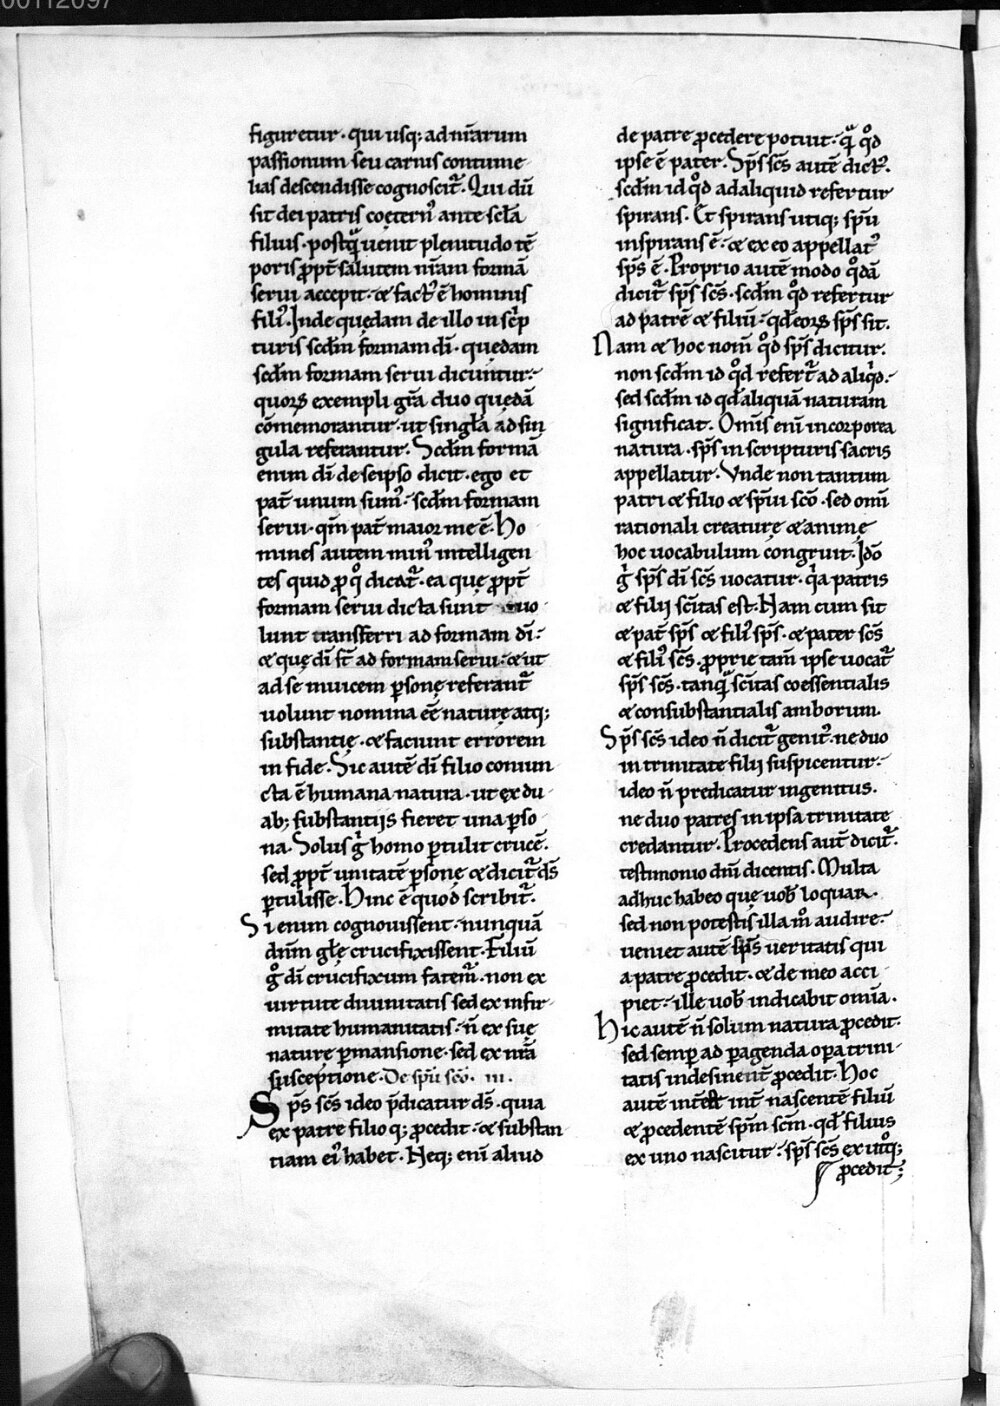 00112097
figuretur · qui usq; ad nr̄arum
passionum seu carnis contume
lias descendisse cognoscit᷑. Qui dū
sit dei patris coęternꝰ ante scl̄a
filius · postq̄ uenit plenitudo tē
poris ꝓpt̄ salutem nr̄am formā
serui accepit · ⁊ factꝰ ē hominis
filiꝰ. Inde quędam de illo in sc̄ⁱp
turis scdm̄ formam dī · quędam
scdm̄ formam serui dicuntur ·
quoꝝ exempli gr̄a duo quędā
cōmemorantur · ut singl̄a ad sin
gula referantur. Scdm̄ formā
enim dī de seipso dicit · ego et
pat̄ unum sumꝰ · scdm̄ formam
serui · qm̄ pat̄ maior me ē. Ho
mines autem minꝰ intelligen
tes quid ꝓ qͦ dicat᷑ · ea quę ꝓpt̄
formam serui dicta sunt uo
lunt transferri ad formam dī ·
⁊ quę dī st̄ ad formam serui · ⁊ ut
ad se inuicem ꝑsonę referant᷑
uolunt nomina eē naturę atq;
substantię · ⁊ faciunt errorem
in fide. Sic autē dī filio coniun
cta ē humana natura · ut ex du
ab; substantijs fieret una ꝑso
na. Solus gͥ homo ꝑtulit crucē.
sed ꝓpt̄ unitatē ꝑsonę ⁊ dicit᷑ ds̄
ꝑtulisse. Hinc ē quod scribit᷑.
Si enim cognouissent · nunquā
dnm̄ glę̄ crucifixissent. Filiū
gͦ dī crucifixum fatem᷑ · non ex
uirtute diuinitatis sed ex infir
mitate humanitatis · n̄ ex suę
naturę ꝑmansione · sed ex nr̄a
susceptione · De spū scō. III.
Sps̄ scs̄ ideo p̄dicatur ds̄ · quia
ex patre filioq; ꝓcedit · ⁊ substan
tiam eiꝰ habet. Neq; enī aliud
de patre ꝓcedere potuit · qͣ qͦd
ipse ē pater. Sps̄ scs̄ autē dictꝰ.
scdm̄ id qͦd ad aliquid refertur
spirans. Et spirans utiq; spū
inspirans ē · ⁊ ex eo appellatꝰ
sps̄ ē. Proprio autē modo qͦdā
dicit᷑ sps̄ scs̄ · scdm̄ qͦd refertur
ad patrē ⁊ filiū · qd̄ eoꝝ sps̄ sit.
Nam ⁊ hoc nom̄ qͦd sps̄ dicitur.
non scdm̄ id qͦd refert᷑ ad aliqͥd ·
sed scdm̄ id qd̄ aliquā naturam
significat. Omīs enī incorporea
natura · sps̄ in scripturis sacris
appellatur. Vnde non tantum
patri ⁊ filio ⁊ spīui scō · sed omī
rationali creaturę ⁊ animę
hoc uocabulum congruit. Idō
gͥ sps̄ dī scs̄ uocatur · qͥa patris
⁊ filij sc̄itas est. Nam cum sit
⁊ pat̄ sps̄ ⁊ filiꝰ sps̄ · ⁊ pater scs̄
⁊ filiꝰ scs̄. proprie tam̄ ipse uocat᷑
sps̄ scs̄ · tanqͣ sc̄itas coessentialis
⁊ consubstantialis amborum.
Sps̄ scs̄ ideo n̄ dicit᷑ genitꝰ · ne duo
in trinitate filij suspicentur ·
ideo n̄ predicatur ingenitus.
ne duo patres in ipsa trinitate
credantur. Procedens aut̄ dicit᷑.
testimonio dnī dicentis. Multa
adhuc habeo que uob̄ loquar.
sed non potestis illa mͦ audire ·
ueniet autē sps̄ ueritatis qui
a patre ꝓcedit · ⁊ de meo acci
piet · ille uob̄ indicabit omīa.
Hic autē n̄ solum natura ꝓcedit.
sed semꝑ ad ꝑagenda oꝑa trini
tatis indesinent̄ ꝓcedit. Hoc
autē int̄est int̄ nascentē filiū
⁊ ꝓcedentē spm̄ scm̄ · qd̄ filius
ex uno nascitur · sps̄ scs̄ ex utͦq;
ꝓcedit;